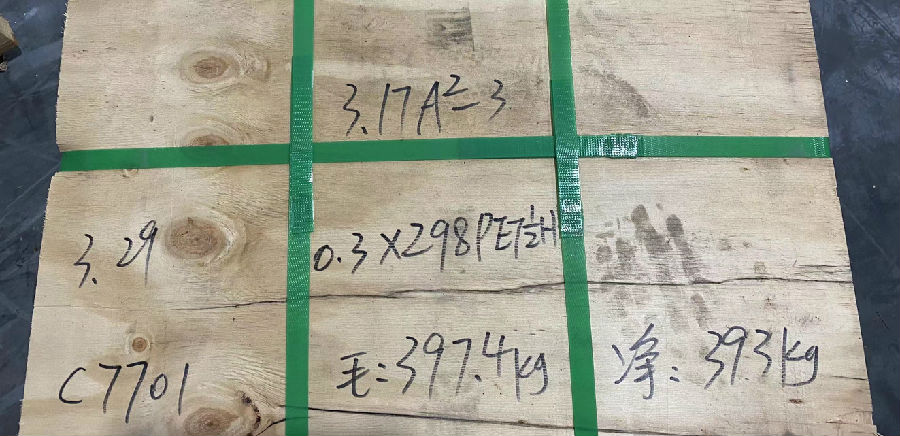 3.17A²-3
3.29
0.3X298PET½H
C7701
毛:397.4kg
净:393kg